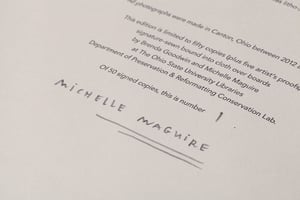 photographs were made in Canton, Ohio between 2012
This edition is limited to fifty copies (plus five artist's proofs
signature-sewn bound into cloth over boards
by Brenda Goodwin and Michelle Maguire
at The Ohio State University Libraries
Department of Preservation & Reformatting Conservation Lab.
Of 50 signed copies, this is number 1
MICHELLE MAGUIRE